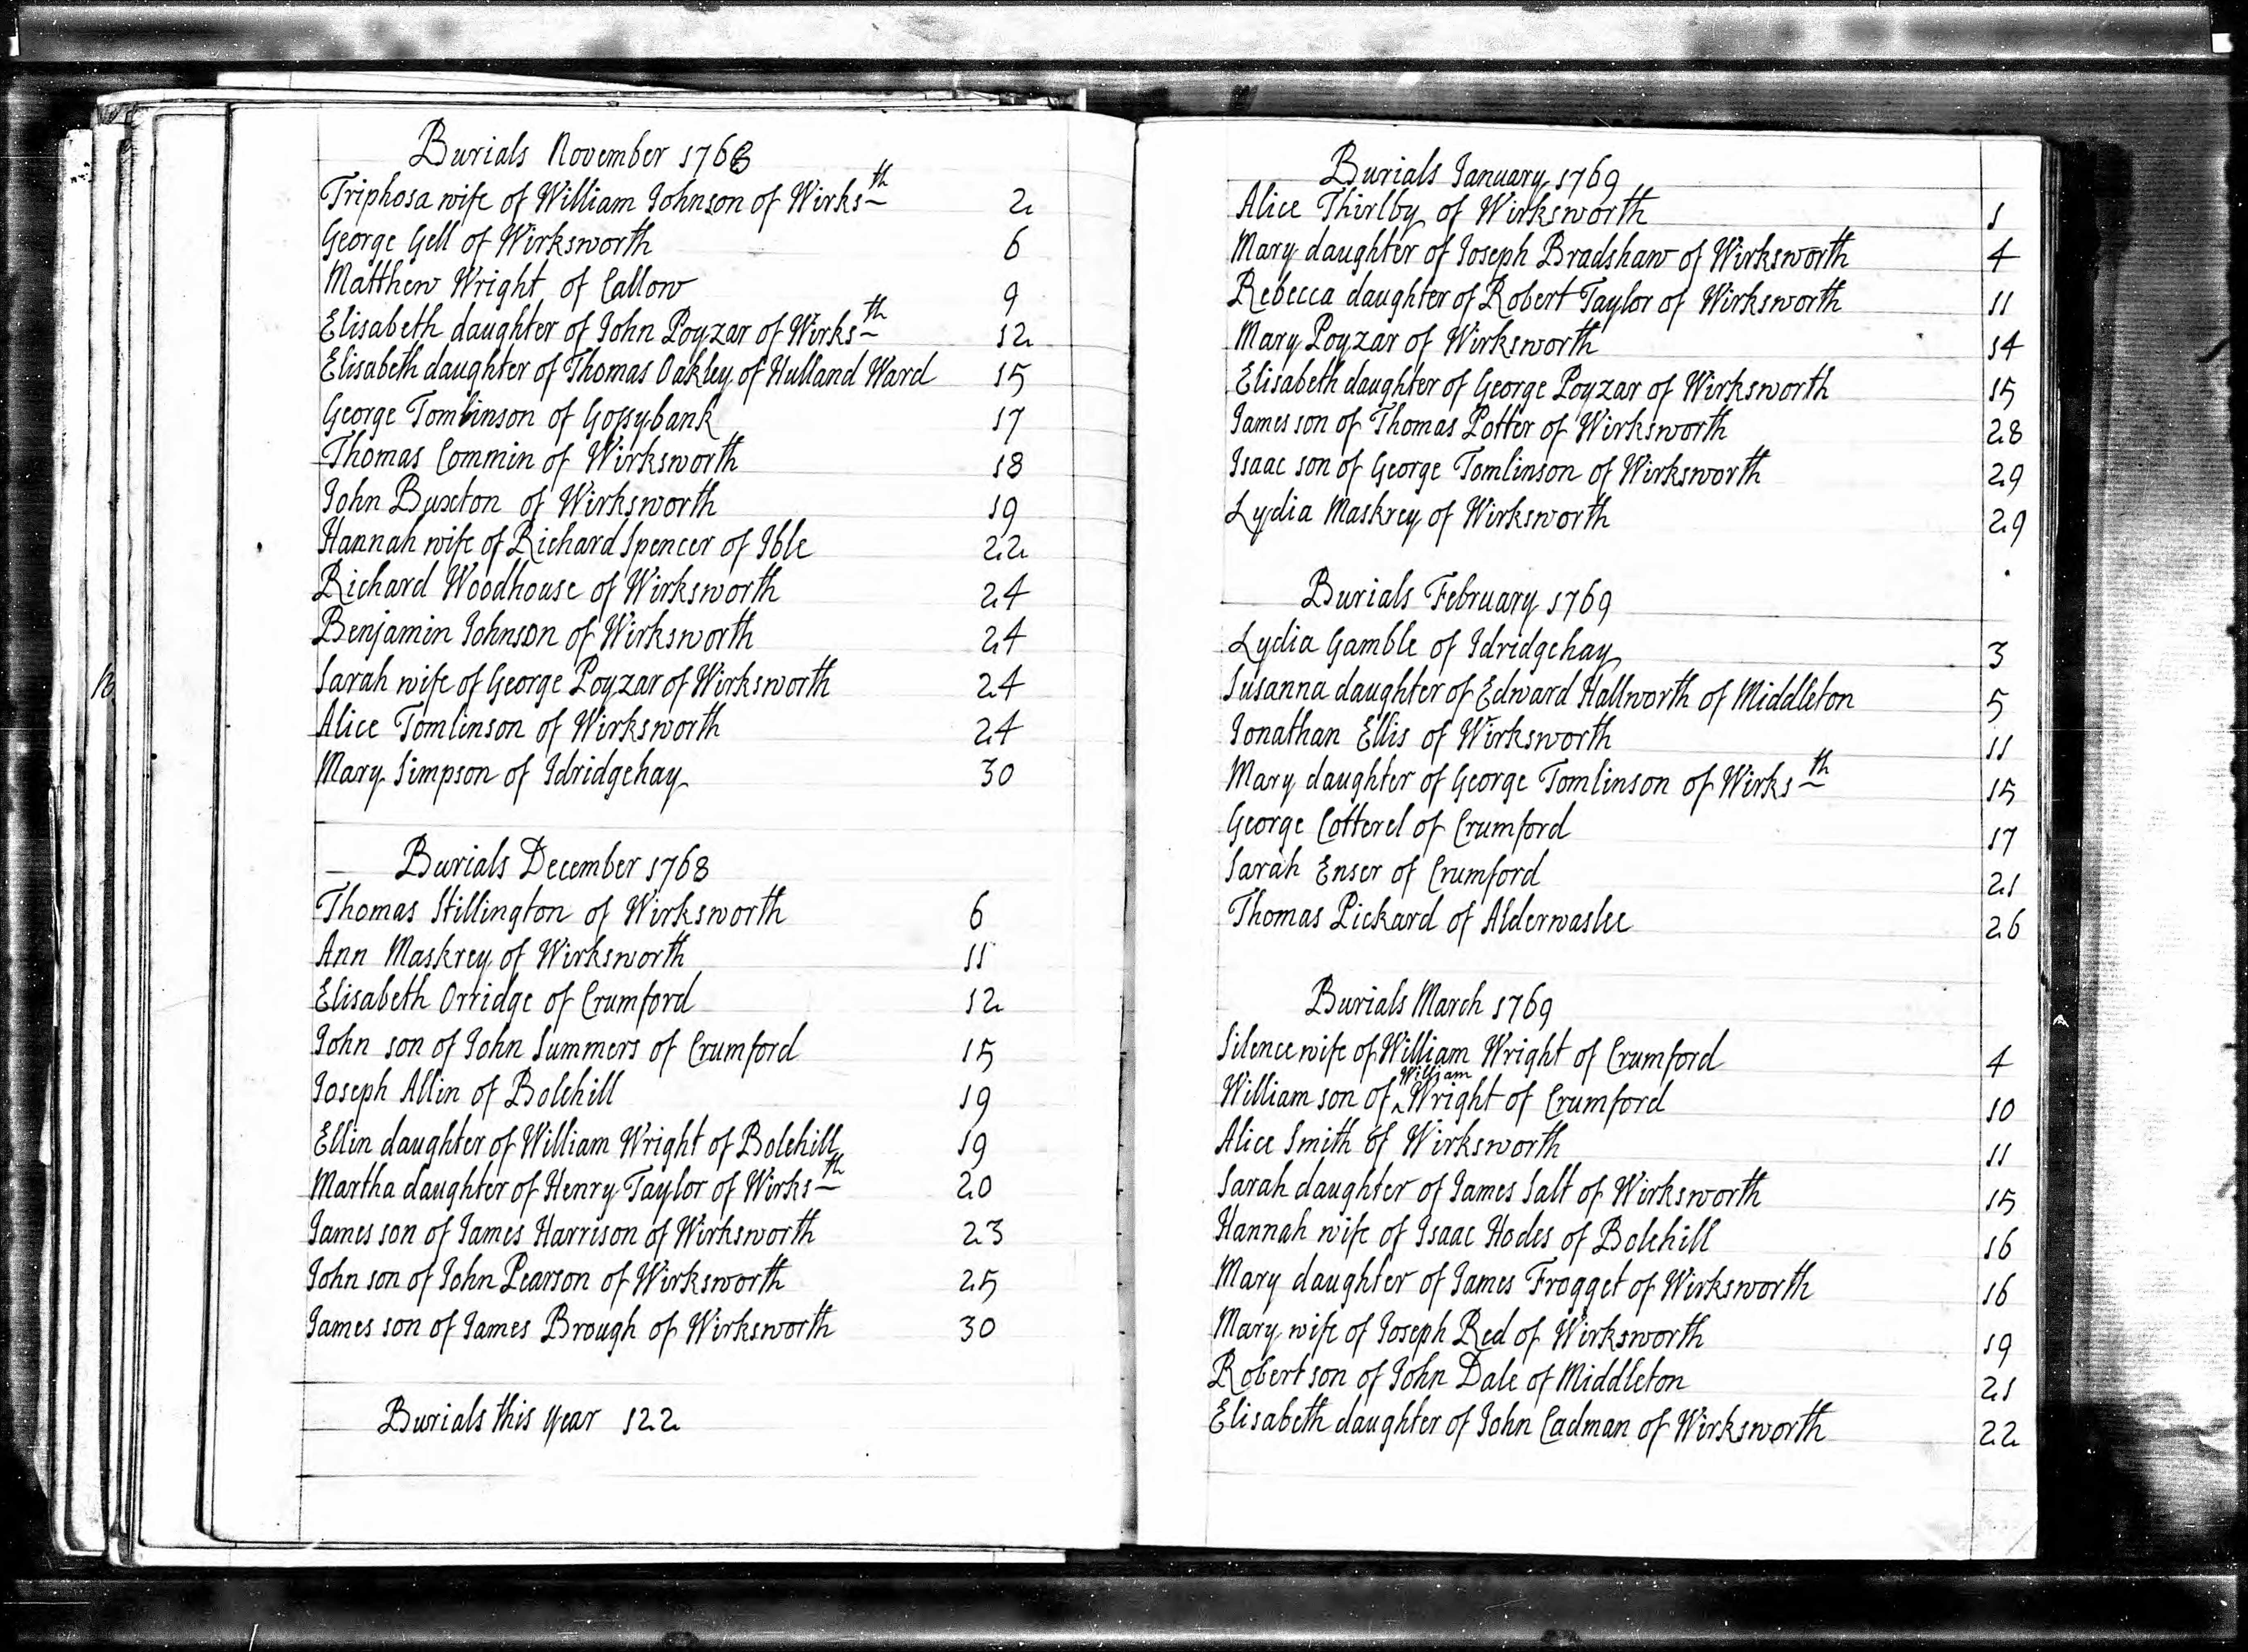 Burials November 1768
Triphosa wife of William Johnson of Wirksth 2
George Gell of Wirksworth 6
Matthew Wright of Callow 9
Elisabeth daughter of John Poyzar of Wirksth 12
Elisabeth daughter of Thomas Oakley of Hulland Ward 15
George Tomlinson of Gopsybank 17
Thomas Commin of Wirksworth 18
John Buxton of Wirksworth 19
Hannah wife of Richard Spencer of Ible 22
Richard Woodhouse of Wirksworth 24
Benjamin Johnson of Wirksworth 24
Sarah wife of George Poyzar of Wirksworth 24
Alice Tomlinson of Wirksworth 24
Mary Simpson of Idridgehay 30
Burials December 1768
Thomas Stillington of Wirksworth 6
Ann Maskrey of Wirksworth 11
Elisabeth Orridge of Crumford 12
John son of John Summers of Crumford 15
Joseph Allin of Bolehill 19
Ellin daughter of William Wright of Bolehill 19
Martha daughter of Henry Taylor of Wirksth 20
James son of James Harrison of Wirksworth 23
John son of John Pearson of Wirksworth 25
James son of James Brough of Wirksworth 30
Burials this year 122
Burials January 1769
Alice Thirlby of Wirksworth 1
Mary daughter of Joseph Bradshaw of Wirksworth 4
Rebecca daughter of Robert Taylor of Wirksworth 11
Mary Poyzar of Wirksworth 14
Elisabeth daughter of George Poyzar of Wirksworth 15
James son of Thomas Potter of Wirksworth 28
Isaac son of George Tomlinson of Wirksworth 29
Lydia Maskrey of Wirksworth 29
Burials February 1769
Lydia Gamble of Idridgehay 3
Susanna daughter of Edward Hallworth of Middleton 5
Jonathan Ellis of Wirksworth 11
Mary daughter of George Tomlinson of Wirksth 15
George Cotterel of Crumford 17
Sarah Enser of Crumford 21
Thomas Pickard of Alderwaslee 26
Burials March 1769
Silence wife of William Wright of Crumford 4
William son of William Wright of Crumford 10
Alice Smith of Wirksworth 11
Sarah daughter of James Salt of Wirksworth 15
Hannah wife of Isaac Hodes of Bolehill 16
Mary daughter of James Frogget of Wirksworth 16
Mary wife of Joseph Red of Wirksworth 19
Robert son of John Dale of Middleton 21
Elisabeth daughter of John Cadman of Wirksworth 22